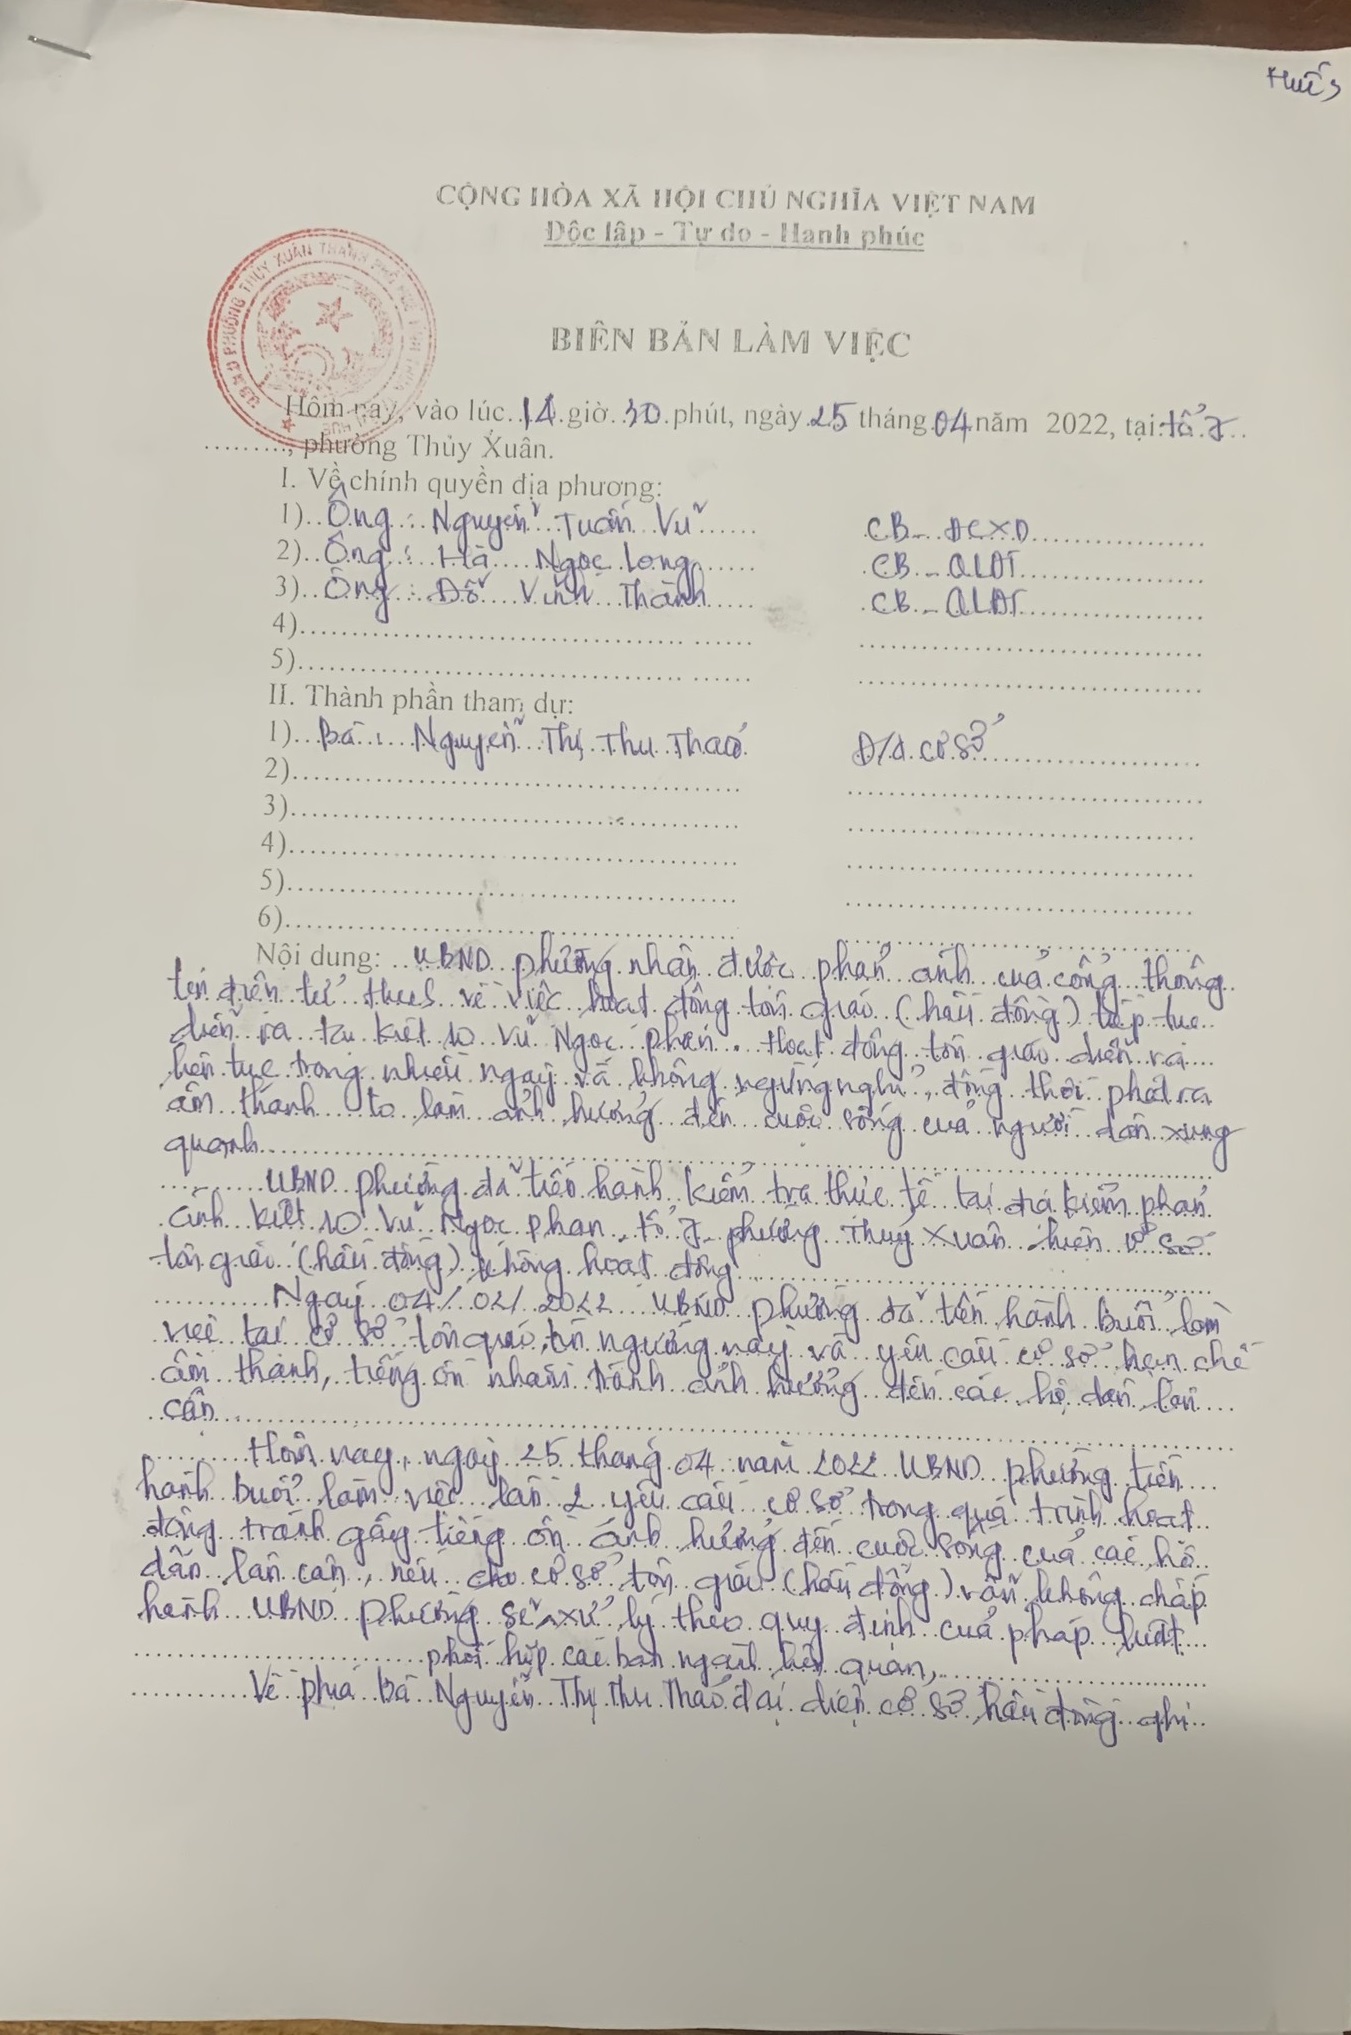 HuếS
CỘNG HÒA XÃ HỘI CHỦ NGHĨA VIỆT NAM
Độc lập - Tự do - Hạnh phúc
UBND PHƯỜNG THỦY XUÂN THÀNH PHỐ HUẾ
BIÊN BẢN LÀM VIỆC
Hôm nay, vào lúc 14 giờ 30 phút, ngày 25 tháng 04 năm 2022, tại: tổ 7
........., phường Thủy Xuân.
I. Về chính quyền địa phương:
1) Ông : Nguyễn Tuấn Vũ CB - ĐCXD
2) Ông : Hà Ngọc Long CB - QLĐT
3) Ông : Đỗ Vinh Thành CB - QLĐT
4)
5)
II. Thành phần tham dự:
1) Bà : Nguyễn Thị Thu Thảo Đ/d cơ sở
2)
3)
4)
5)
6)
Nội dung: UBND phường nhận được phản ánh của cổng thông
tin điện tử HueS về việc hoạt động tôn giáo (hầu đồng) tiếp tục
diễn ra tại kiệt 10 Vũ Ngọc Phan. Hoạt động tôn giáo diễn ra
liên tục trong nhiều ngày và không ngừng nghỉ, đồng thời phát ra
âm thanh to làm ảnh hưởng đến cuộc sống của người dân xung
quanh
UBND phường đã tiến hành kiểm tra thực tế tại địa điểm phản
ánh kiệt 10 Vũ Ngọc Phan, tổ 7, phường Thủy Xuân hiện cơ sở
tôn giáo (hầu đồng) không hoạt động
Ngày 04/02/2022 UBND phường đã tiến hành buổi làm
việc tại cơ sở tôn giáo, tín ngưỡng này và yêu cầu cơ sở hạn chế
âm thanh, tiếng ồn nhằm tránh ảnh hưởng đến các hộ dân lân
cận
Hôm nay, ngày 25 tháng 04 năm 2022 UBND phường tiến
hành buổi làm việc lần 2 yêu cầu cơ sở trong quá trình hoạt
động tránh gây tiếng ồn ảnh hưởng đến cuộc sống của các hộ
dân lân cận, nếu cơ sở tôn giáo (hầu đồng) vẫn không chấp
hành UBND phường sẽ xử lý theo quy định của pháp luật
phối hợp các ban ngành liên quan,
Về phía bà Nguyễn Thị Thu Thảo đại diện cơ sở hầu đồng ghi